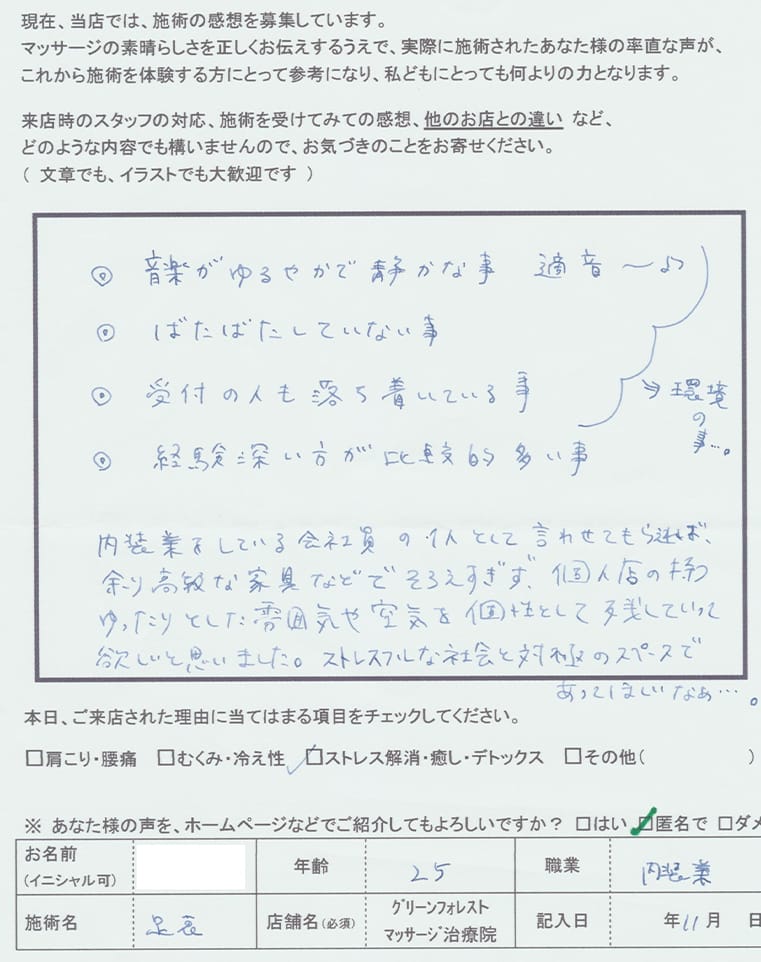 現在、当店では、施術の感想を募集しています。
マッサージの素晴らしさを正しくお伝えするうえで、実際に施術されたあなた様の率直な声が、
これから施術を体験する方にとって参考になり、私どもにとっても何よりの力となります。
来店時のスタッフの対応、施術を受けてみての感想、他のお店との違い など、
どのような内容でも構いませんので、お気づきのことをお寄せください。
( 文章でも、イラストでも大歓迎です )
◎ 音楽がゆるやかで静かな事 適音
◎ ばたばたしていない事
◎ 受付の人も落ち着いている事
⇒環境の事…。
◎ 経験深い方が比較的多い事
内装業をしている会社員の1人として言わせてもらえば、
余り高級な家具などでそろえすぎず、個人店の持つ
ゆったりとした雰囲気や空気を個性として残していって
欲しいと思いました。ストレスフルな社会と対極のスペースで
あってほしいなぁ…。
本日、ご来店された理由に当てはまる項目をチェックしてください。
□肩こり・腰痛 □むくみ・冷え性 ☑ストレス解消・癒し・デトックス □その他( )
※ あなた様の声を、ホームページなどでご紹介してもよろしいですか? □はい ☑匿名で □ダメ
お名前 (イニシャル可) 年齢 25 職業 内装業
施術名 足裏 店舗名(必須) グリーンフォレスト マッサージ治療院 記入日 年11月 日